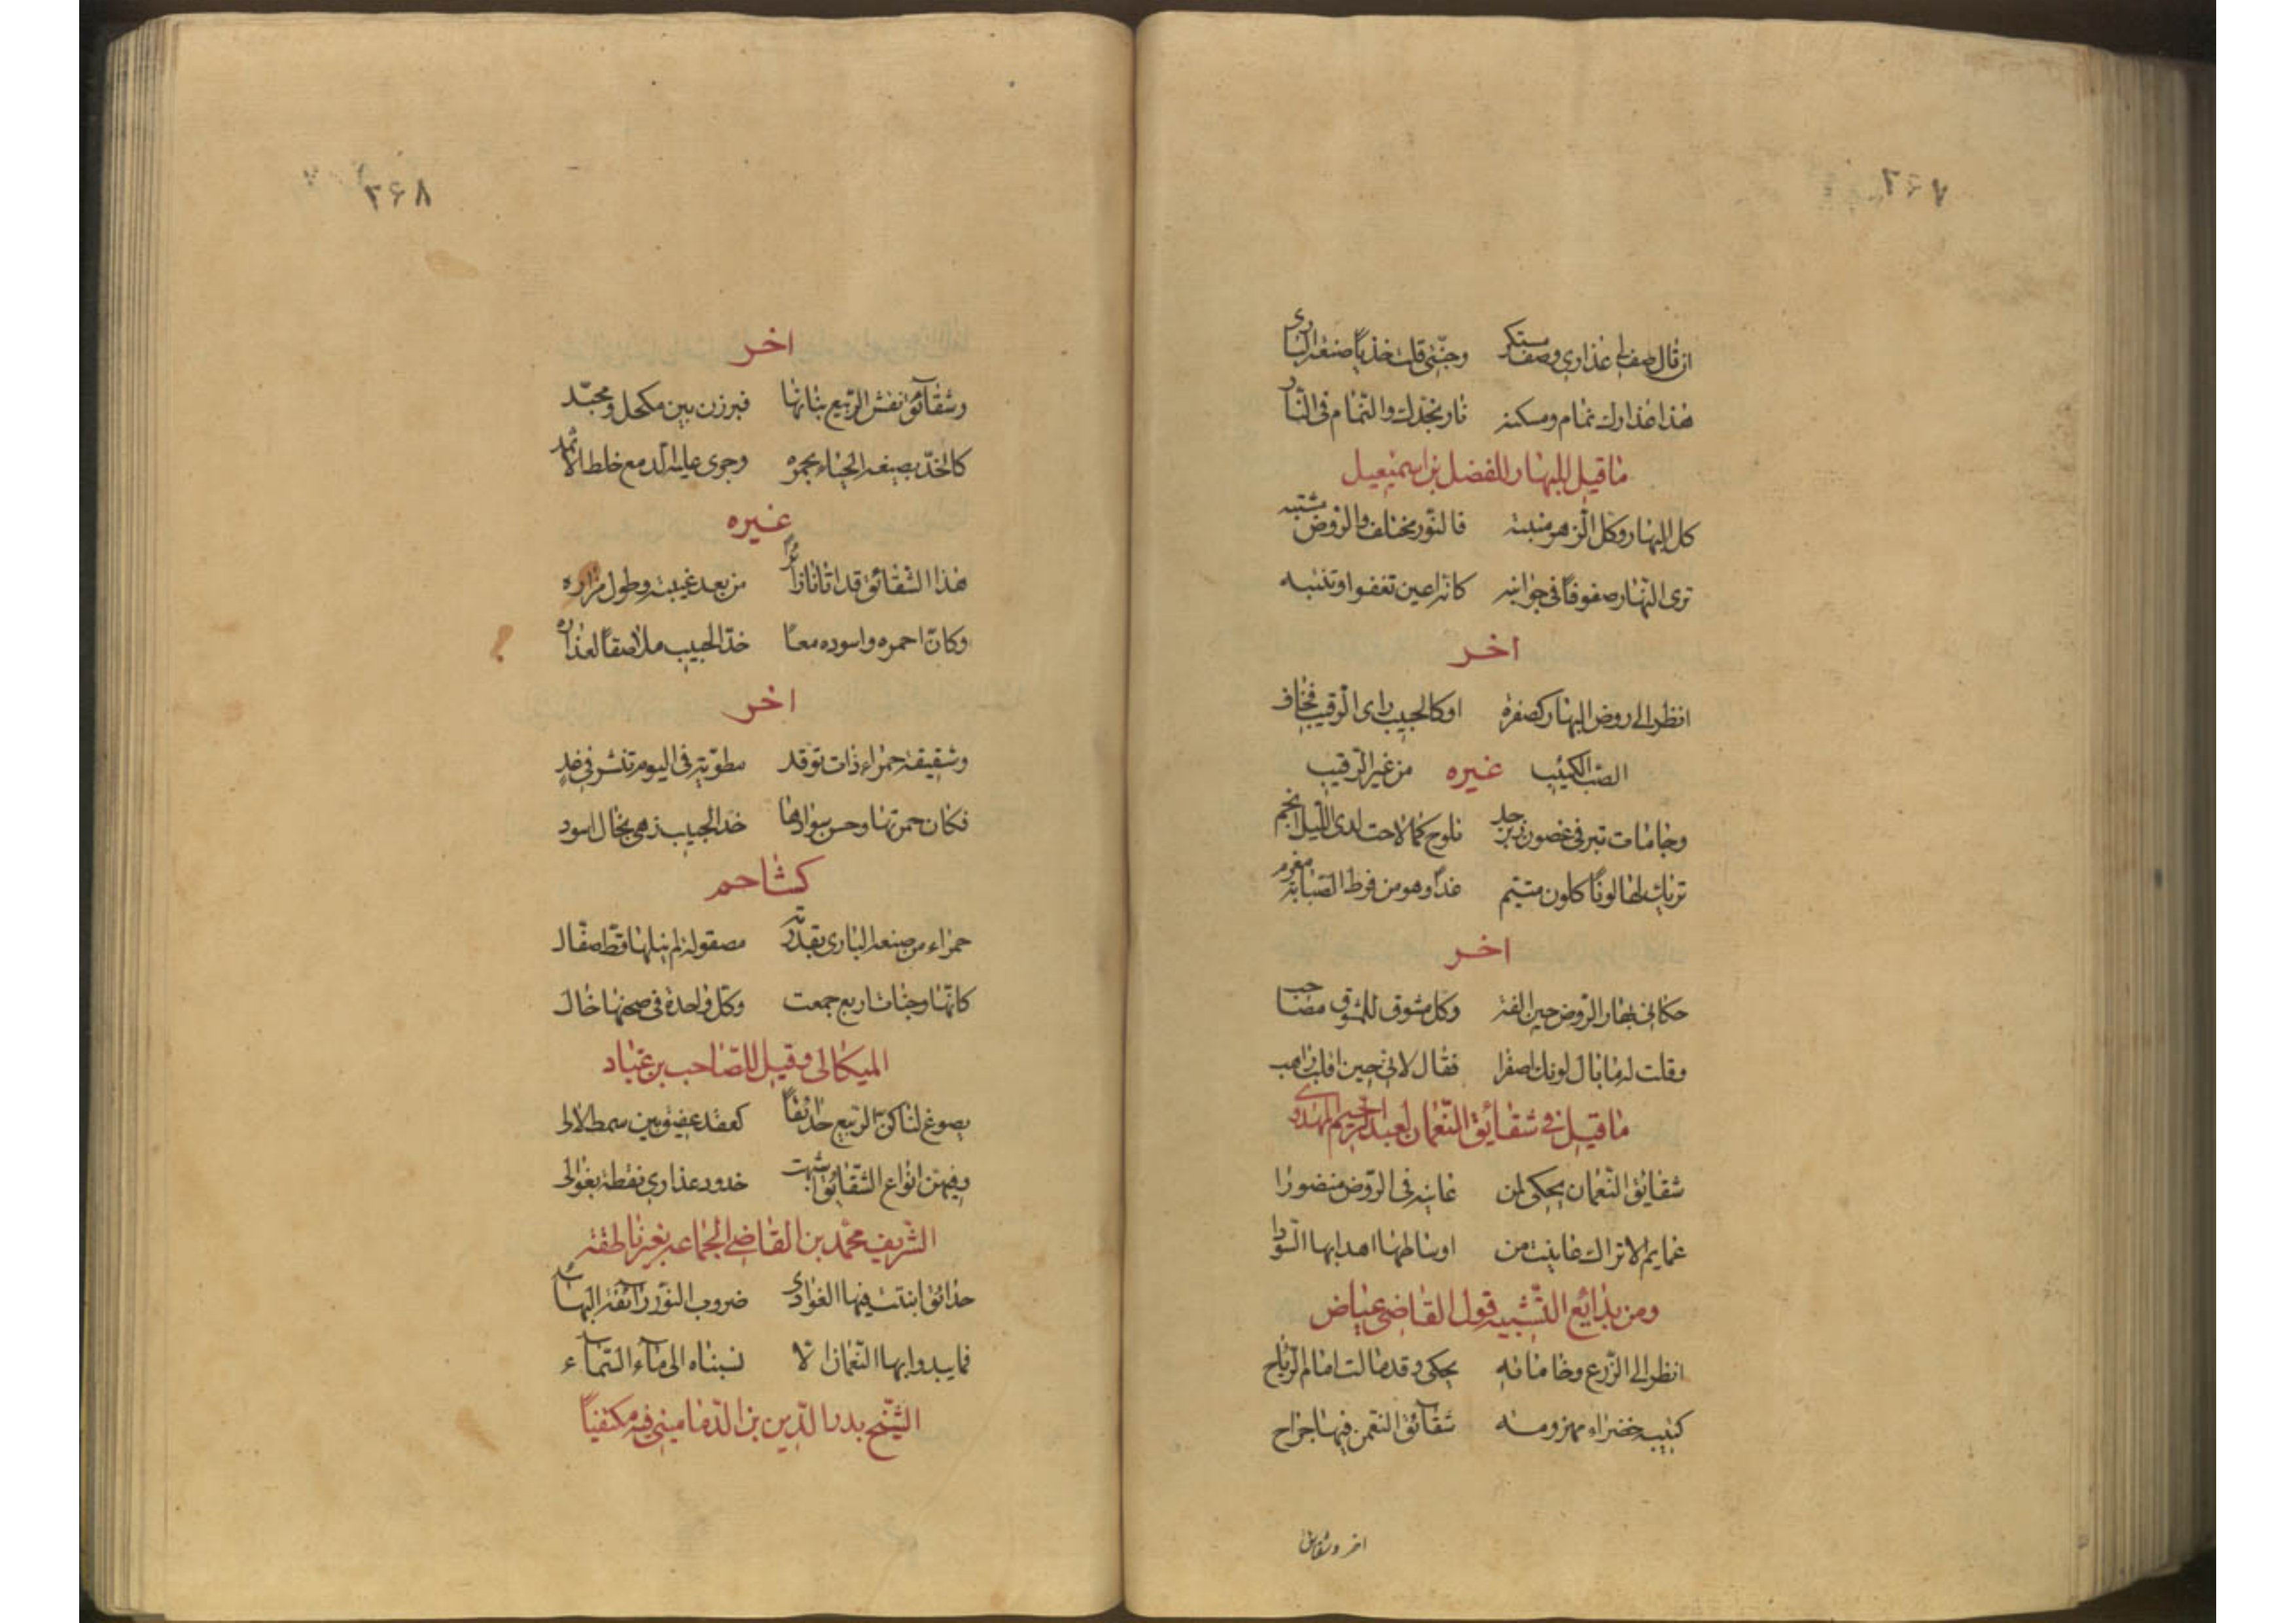 ۲۶۷
ان قال صف لي عذاري وصف مبتكر وجنتي قلت خذ يا صنعة الباري
هذا عذارك نمام ومسكنه نار بخدك والنمام في النار
ما قيل البهار للفضل بن اسمعيل
كل البهار وكل الزهر منبته فالنور مختلف والروض مشتبه
ترى البهار صفوفًا في جوانبه كانه اعين تغفوا وتنتبه
اخر
انظر الى روض البهار كصفرة اوكالحبيب راى الرقيب فخاف
الصب الكئيب غيره من غير الرقيب
وجامات تبر في غصون زبرجد تلوح كما لاحت لدى الليل انجم
تريك لها لونًا كلون متيم غدا وهو من فرط الصبابة مغرم
اخر
حكاني بهار الروض حين الفته وكل مشوق للمشوق مصاحب
وقلت له ما بال لونك اصفرا فقال لاني حين اقلب راهب
ما قيل في شقايق النعمان لعبد الرحيم المهدوى
شقايق النعمان يحكي لمن عاينه في الروض منضورا
عمايم الاتراك عاينت من اوساطها اهدابها السودا
ومن بدائع التشبيه قول القاضي عياض
انظر الى الزرع وخاماته يحكي وقد مالت امام الرياح
كتيبة خضراء مهزومه شقائق النعمن فيها جراح
اخر وشقايق
۲۶۸
اخر
وشقائق نقش الربيع بنانها فبرزن بين مكحل ومجمد
كالخد يصبغه الحياء بحمرة وجرى عليه الدمع خلط الاثمد
غيره
هذا الشقائق قد اتانا زائرًا من بعد غيبته وطول مزاره
وكان احمره واسوده معًا خد الحبيب ملاصقًا لعذاره
اخر
وشقيقة حمراء ذات توقد مطوية في اليوم تنشر في غد
فكان حمرتها وحسن سوادها خد الحبيب زهي بخال اسود
كشاحم
حمراء من صنعة الباري بقدرته مصقولة لم ينلها قط صقال
كانها وجنات اربع جمعت وكل واحدة في صحنها خال
الميكالى وقيل للصاحب بن عباد
يصوغ لنا كف الربيع حدائقًا كعقد عقيق بين سمط لالى
وفيهن انواع الشقائق اشبهت خدود عذارى نقطة بغوالى
الشريف محمد بن القاضي الجماعه بغرناطقه
حدائق انبتت فيها الغوادى ضروب النور رائقة البهاء
فما يبدوا بها النعمان الا نسبناه الى ماء السماء
الشيخ بدر الدين بن الدماميني فيه مكتفياً